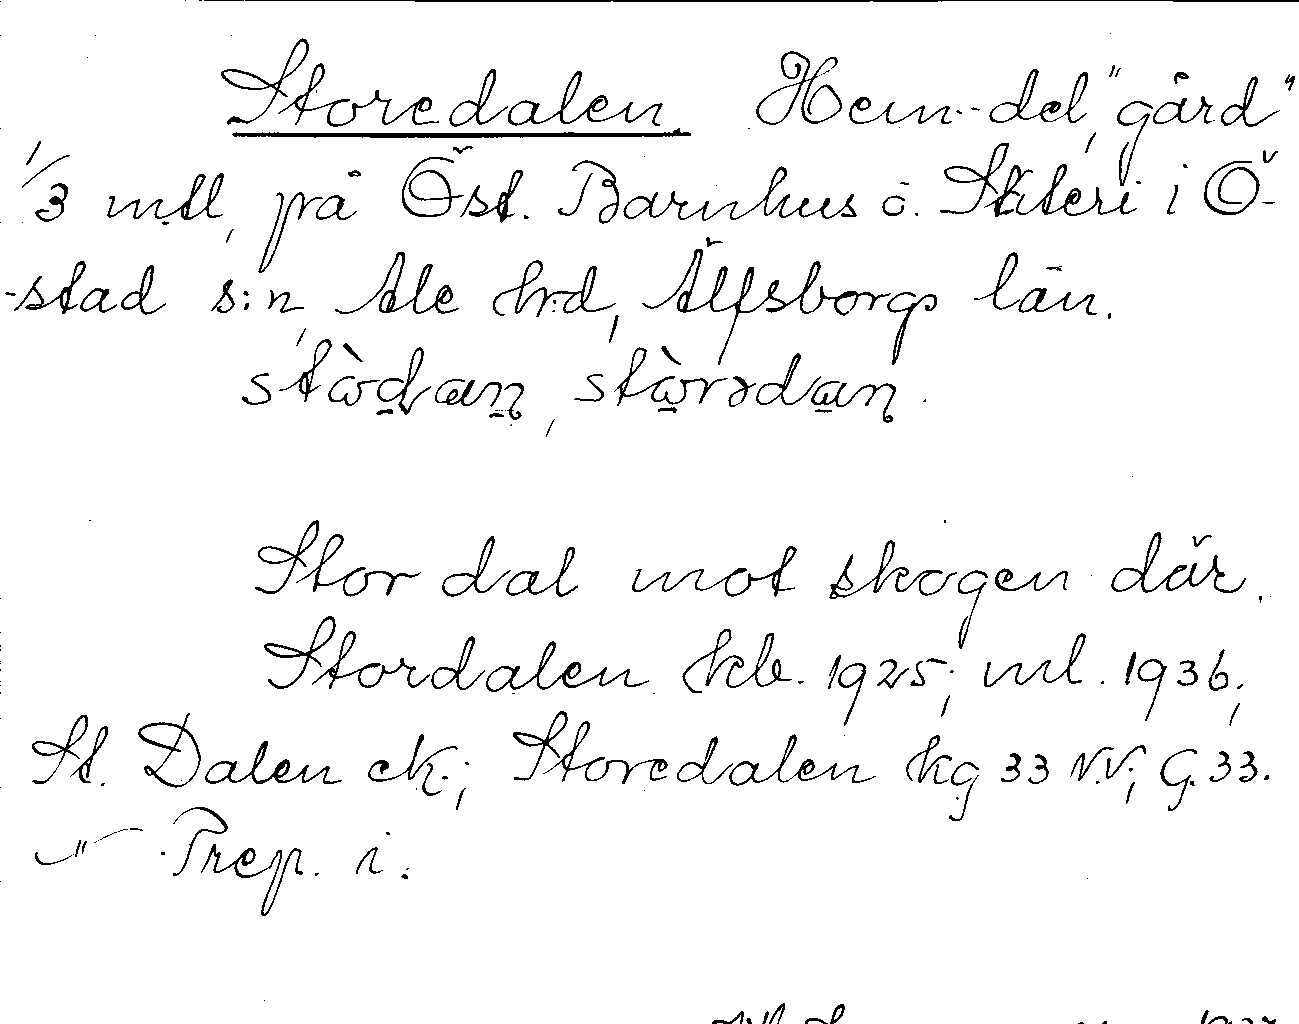 Storedalen. Hem.-del, "gård"
1/3 mtl, på Öst. Barnhus o. Skiteri i Ö-
-stad s:n, Ale hrd, Älfsborgs län.
stòdan, stòrədan.
Stor dal mot skogen där.
Stordalen hkb. 1925; ml. 1936;
St. Dalen ek.; Storedalen kg 33 N.V.; G. 33.
Prep. i.